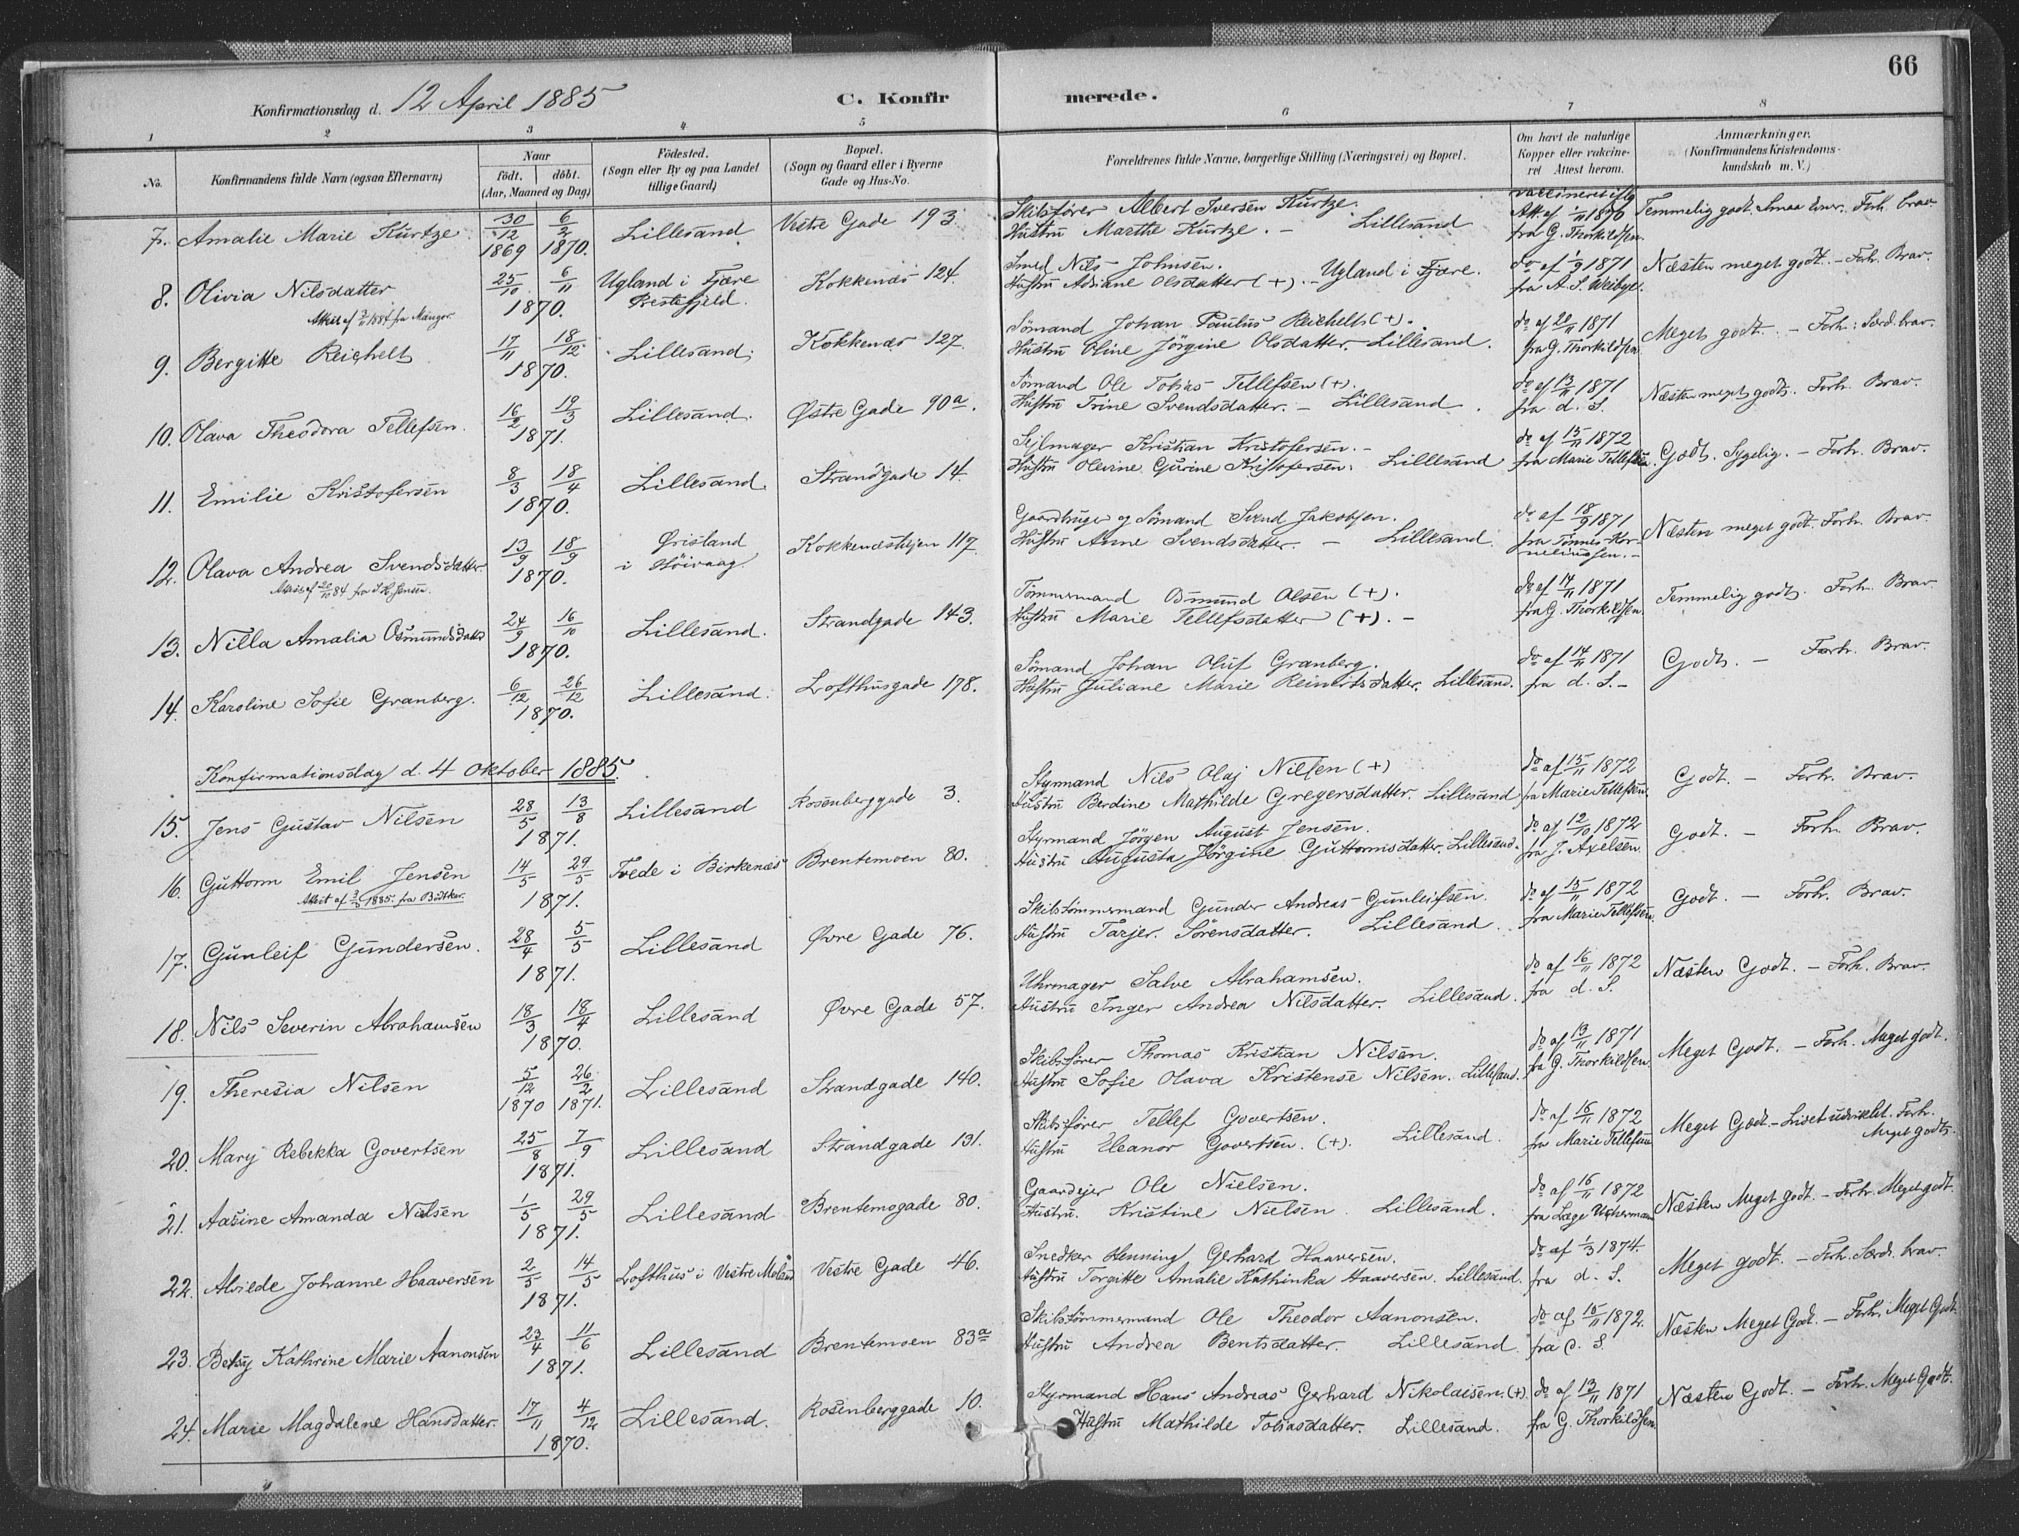 66
Konfirmationsdag d. 12 April 1885
C. Konfirmerede.
1 2 3 4 5 6 7 8
No.
Konfirmandens fulde Navn (ogsaa Efternavn)
Naar
født. døbt.
(Aar, Maaned og Dag)
Fødested.
(Sogn eller By og paa Landet
tillige Gaard)
Bopæl.
(Sogn og Gaard eller i Byerne
Gade og Hus-No.
Forældrenes fulde Navne, borgerlige Stilling (Næringsvei) og Bopæl.
Om havt de naturlige
Kopper eller vakcine-
ret Attest herom.
Anmærkninger.
(Konfirmandens Kristendoms-
kundskab m. V.)
7. Amalie Marie Kurtze. 30/12 1869 6/2 1870. Lillesand Vestre Gade 193. Skibsfører Albert Iversen Kurtze.
Hustru Marthe Kurtze. – Lillesand
Att. af 1/11 1870 fra G. Thorkildsen. Temmelig godt. Forh. brav
8. Olivia Nilsdatter 25/10 6/11 1870. Ugland i Fjære Kokkenæs 124. Smed Nils Johnsen.
Attest af 1884 fra
Prestefjeld.
Hustru Adriane Olsdatter (+). – Ugland i Fjære.
do af 1/9 1871 fra A. S. Weibye. Næsten meget godt. – Forh. Brav.
9. Bergitte Reichelt 17/11 18/12 1870. Lillesand. Kokkenæs 127. Sømand Johan Paulus Reichelt (+).
Hustru Oline Jørgine Olsdatter. Lillesand.
do af 20/11 1871 fra G. Thorkildsen Meget godt. – Forh: Særd. brav.
10. Olava Theodora Tellefsen. 16/2 19/3 1871. Lillesand. Østre Gade 90a. Sømand Ole Tobias Tellefsen (+).
Hustru Trine Svendsdatter. – Lillesand.
do af 13/11 1871 fra d. S. Næsten meget godt. Forh. Brav.
11. Emilie Kristofersen 8/3 18/4 1870. Lillesand. Strandgade 14. Sejlmager Kristian Kristofersen. –
Hustru Olevine Gurine Kristofersen. Lillesand
do af 15/11 1872 fra Marie Tellefsen. Godt. Sygelig. – Forh. Brav.
12. Olava Andrea Svendsdatter. 13/9 18/9 1870. Øristand i Høivaag Kokkenæshejen 117. Gaardbruger og Sømand Svend Jakobsen.
Attest af 84 fra
Hustru Anne Svendsdatter. – Lillesand.
do af 18/9 1871 fra Tønnes Korneliussen. – Næsten meget godt. Forh. Brav.
13. Nilla Amalia Osmundsdatter 24/9 16/10 1870. Lillesand. Strandgade 143. Tømmermand Osmund Olsen (+).
Hustru Marie Tellefsdatter (+). –
do af 14/11 1871 fra G. Thorkildsen. Temmelig godt. Forh. Brav.
14. Karoline Sofie Granberg. 6/12 26/12 1870. Lillesand. Lofthusgade 178. Sømand Johan Oluf Granberg.
Hustru Juliane Marie Reinertsdatter. Lillesand.
do af 14/11 1871 fra d. S. – Godt. – Forh. Brav.
Konfirmationsdag d. 4 Oktober 1885.
15. Jens Gustav Nilsen 28/5 13/8 1871. Lillesand Rosenberggade 3. Styrmand Nils Olaj Nilsen (+)
Hustru Berdine Mathilde Gregersdatter. Lillesand
do af 15/11 1872 fra Marie Tellefsen. Godt. – Forh. Brav.
16. Guttorm Emil Jensen 14/5 29/5 1871. Tvede i Birkenæs Brentemoen 80. Styrmand Jørgen August Jensen.
Attest af 1885. fra
Hustru Augusta Jørgine Guttormsdatter. Lillesand.
do af 12/10 1872 fra J. Axelsen. Godt. – Forh. Brav.
17. Gunleif Gundersen. 28/4 5/5 1871. Lillesand Øvre Gade 76. Skibstømmermand Gunder Andreas Gunleifsen.
Hustru Tarjer. Sørensdatter. Lillesand.
do af 15/11 1872 fra Marie Tellefsen. Godt. – Forh. Brav.
18. Nils Severin Abrahamsen 18/3 18/4 1870. Lillesand Øvre Gade 57. Uhrmager Salve Abrahamsen.
Hustru Inger Andrea Nilsdatter. Lillesand.
do af 16/11 1872 fra d. S. Næsten Godt. – Forh. Brav.
19. Theresia Nilsen 5/12 1870 26/2 1871. Lillesand Strandgade 140. Skibsfører Thomas Kristian Nilsen.
Hustru Sofie Olava Kristense Nilsen. Lillesand.
do af 13/11 1871 fra G. Thorkildsen. Meget Godt. – Forh. Meget godt.
20. Mary Rebekka Govertsen 25/8 7/9 1871. Lillesand Strandgade 131. Skibsfører Tellef Govertsen.
Hustru Eleanor Govertsen. (+). Lillesand.
do af 16/11 1872 fra Marie Tellefsen Meget Godt. – Lidet udviklet. Forh. Meget godt.
21. Aasine Amanda Nilsen 1/5 29/5 1871. Lillesand Brentemogade 80. Gaardejer Ole Nielsen.
Hustru. Kristine Nielsen. Lillesand.
do af 16/11 1872 fra Læge Uchermann Næsten Meget godt. – Forh. Meget godt.
22. Alvilde Johanne Haaversen 2/5 14/5 1871. Lofthus i Vestre Moland Vestre Gade 46. Snedker Henning Gerhard Haaversen.
Hustru Torgitte Amalie Kathinka Haaversen. Lillesand.
do af 1/3 1874. fra d. S. Meget godt. – Forh. Særd. brav.
23. Betsy Kathrine Marie Aanonsen 23/4 11/6 1871. Lillesand Brentemoen 83a Skibstømmermand Ole Theodor Aanonsen.
Hustru Andrea Bentsdatter. Lillesand
do af 15/11 1872. fra C. S. Næsten Meget Godt. – Forh. Meget Godt.
24. Marie Magdalene Hansdatter. 17/11 4/12 1870. Lillesand. Rosenberggade 10. Styrmand Hans Andreas Gerhard Nikolaisen. (+).
Hustru Mathilde Tobiasdatter. Lillesand.
do af 13/11 1871 fra G. Thorkildsen. Næsten Godt. – Forh. Meget Godt.